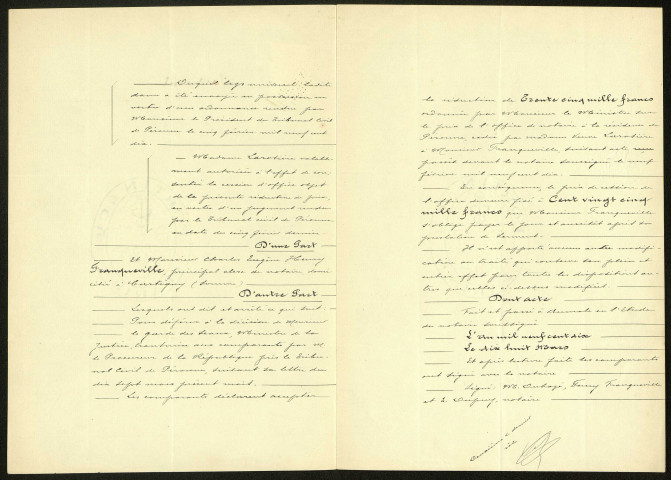 Duquel legs universel ladite
dame a été envoyée en possession en
vertu d'une ordonnance rendue par
Monsieur le Président du Tribunal Civil
de Péronne le cinq février mil neuf cent
dix.
Madame Larozière valable-
ment autorisée à l'effet de con-
sentir la cession d'office objet
de la présente réduction de prix,
en vertu d'un jugement rendu
par le Tribunal civil de Péronne
en date du cinq février dernier
D'une Part
Et Monsieur Charles Eugène Henry
Franqueville, principal clerc de notaire domi-
cilié à Cartigny (Somme)
D'autre Part
Lesquels ont dit et arrêté ce qui suit:
Pour déférer à la décision de Monsieur
le Garde des Sceaux, Ministre de la
Justice, transmise aux comparants par M.
le Procureur de la République près le Tribu-
nal Civil de Péronne, suivant sa lettre du
dix sept mars présent mois.
Les comparants déclarent accepter
la réduction de Trente cinq mille francs
ordonnée par Monsieur le Ministre sur
le prix de l'office de notaire à la résidence de
Péronne, cédé par madame Veuve Larozière
à Monsieur Franqueville suivant acte
passé devant le notaire soussigné le neuf
février mil neuf cent dix.
En conséquence, le prix de cession de
l'office demeure fixé à Cent vingt cinq
mille francs que Monsieur Franqueville
s'oblige payer le jour et aussitôt après sa
prestation de serment.
Il n'est apporté aucune autre modifi-
cation au traité qui conserve son plein et
entier effet pour toutes les dispositions au-
tres que celles ci-dessus modifiées.
Dont acte
Fait et passé à en l'Etude
du notaire soussigné
L'an mil neuf cent dix
Le dix huit Mars
Et après lecture faite les comparants
ont signé avec le notaire
Signé: M. Franqueville
et notaire